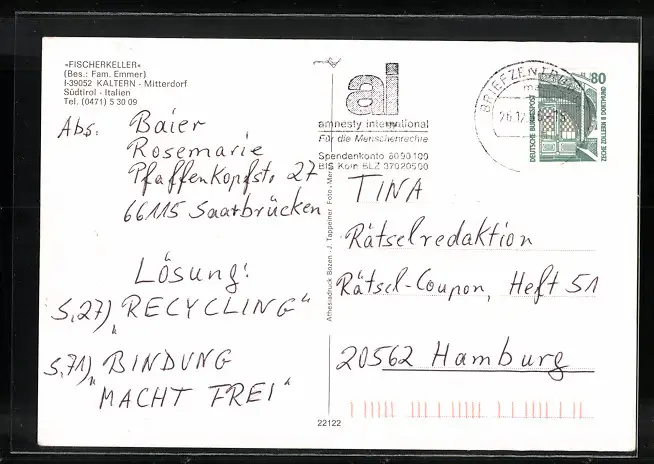 »FISCHERKELLER«
(Bes.: Fam. Emmer)
I-39052 KALTERN - Mitterdorf
Südtirol - Italien
Tel. (0471) 5 30 09
Abs: Baier
Rosemarie
Pfaffenkopfstr. 27
66115 Saarbrücken
Lösung:
S. 27) „RECYCLING"
S. 71) „BINDUNG
MACHT FREI"
ai
amnesty international
Für die Menschenrechte
Spendenkonto 8090100
BfS Köln BLZ 37020500
BRIEFZENTRUM
80
DEUTSCHE BUNDESPOST
ZECHE ZOLLERN II DORTMUND
Athesiadruck Bozen - J. Tappeiner Foto, Meran
TINA
Rätselredaktion
Rätsel-Coupon, Heft 51
20562 Hamburg
22122